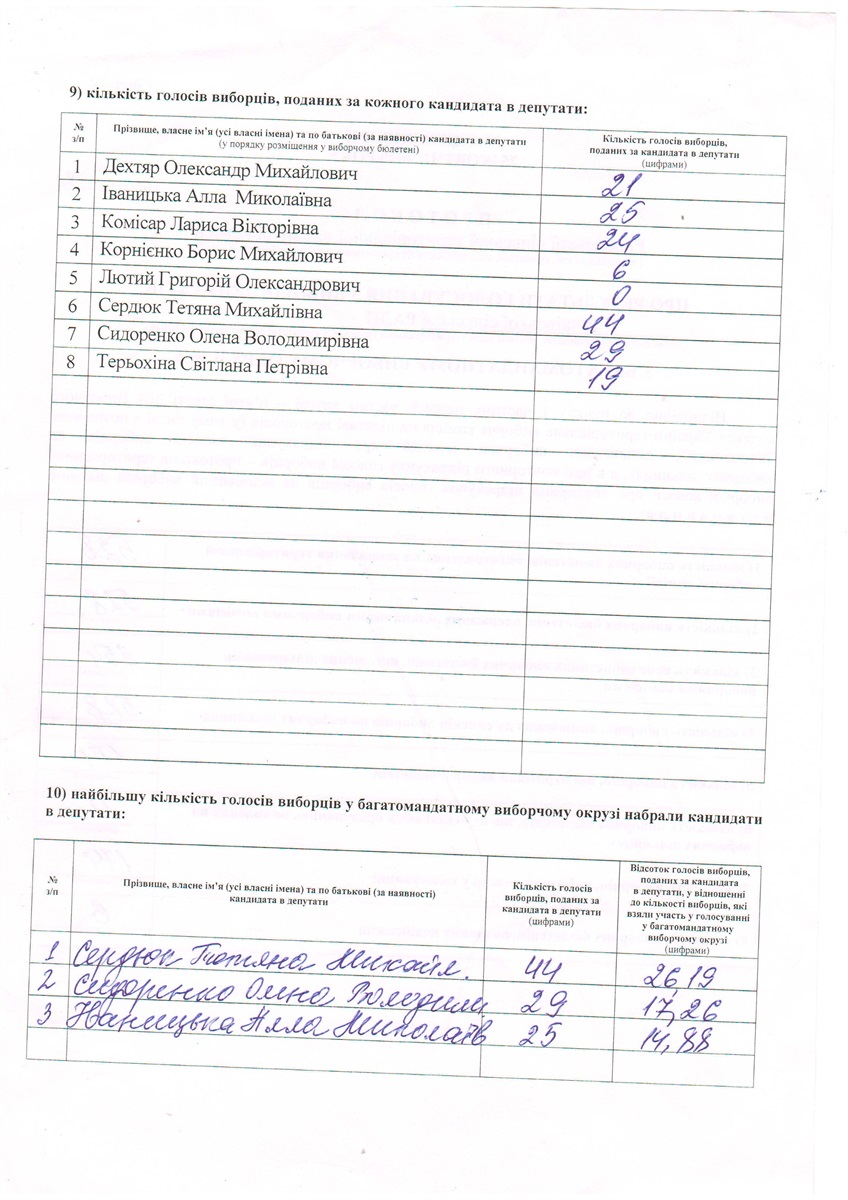 9) кількість голосів виборців, поданих за кожного кандидата в депутати:
№ з/п
Прізвище, власне ім’я (усі власні імена) та по батькові (за наявності) кандидата в депутати
(у порядку розміщення у виборчому бюлетені)
Кількість голосів виборців,
поданих за кандидата в депутати
(цифрами)
1 Дехтяр Олександр Михайлович 21
2 Іваницька Алла Миколаївна 25
3 Комісар Лариса Вікторівна 24
4 Корнієнко Борис Михайлович 6
5 Лютий Григорій Олександрович 0
6 Сердюк Тетяна Михайлівна 44
7 Сидоренко Олена Володимирівна 29
8 Терьохіна Світлана Петрівна 19
10) найбільшу кількість голосів виборців у багатомандатному виборчому окрузі набрали кандидати
в депутати:
№ з/п
Прізвище, власне ім’я (усі власні імена) та по батькові (за наявності)
кандидата в депутати
Кількість голосів
виборців, поданих за
кандидата в депутати
(цифрами)
Відсоток голосів виборців,
поданих за кандидата
в депутати, у відношенні
до кількості виборців, які
взяли участь у голосуванні
у багатомандатному
виборчому окрузі
(цифрами)
1 Сердюк Тетяна Михайл. 44 26,19
2 Сидоренко Олена 29 17,26
3 Іваницька Алла 25 14,88